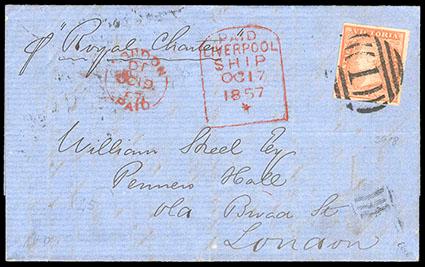 p "Royal Charter"
LONDON
OC 19
57
PAID
PAID
LIVERPOOL
SHIP
OC 17
1857
VICTORIA
1
William Steel Esq
Penners Hall
Old Broad St
London